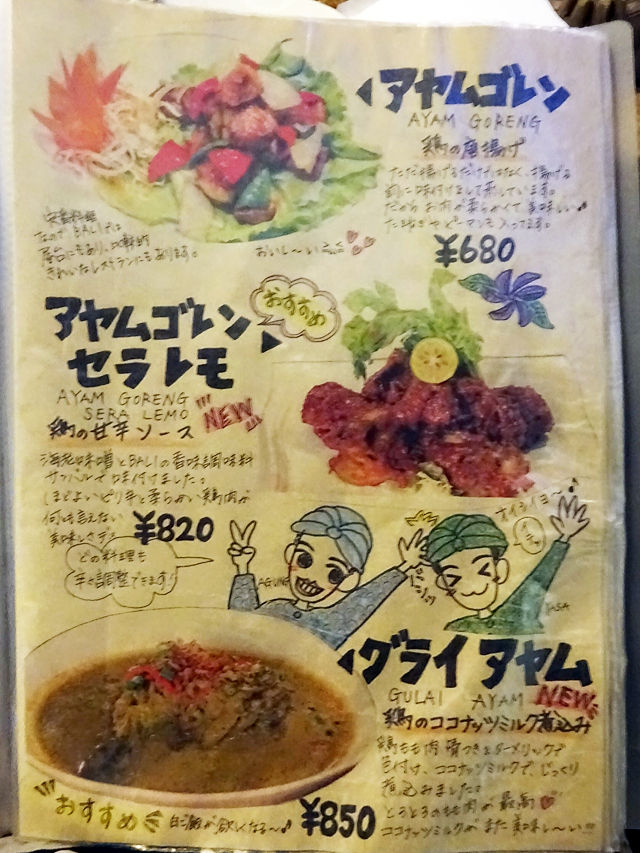 アヤムゴレン
AYAM GORENG
鶏の唐揚げ
ただ揚げるだけではなく、揚げる
前に味付けをして来ています。
だからお肉が柔らかくて美味しい♪
たまねぎやピーマンも入ってます。
¥680
定番料理
なので BALIでは
屋台にもあり、比較的
きれいなレストランにもあります。
おいし〜い
アヤムゴレン
セラレモ
おすすめ
AYAM GORENG
SERA LEMO
NEW
鶏の甘辛ソース
海老味噌とBALIの香味調味料
サンバルで味付けました。
ほどよいピリ辛と柔らかい鶏肉が
何とも言えない
美味しさです
¥820
どの料理も
辛さ調整できます!
AGUNG
オイシイヨ〜♪
YASA
グライ アヤム
GULAI AYAM NEW
鶏のココナッツミルク煮込み
鶏もも肉 骨つきをターメリックで
色付け、ココナッツミルクで、じっくり
煮込みました。
とろとろのもも肉が最高
ココナッツミルクがまた美味し〜い!!!
おすすめ
白ご飯が欲しくなる〜♪
¥850